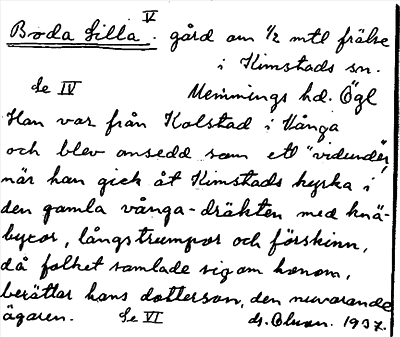 V
Boda Lilla. gård om 1/2 mtl frälse
i Kimstads sn.
Se IV Memmings hd. Ögl
Han var från Kolstad i Vånga
och blev ansedd som ett "vidunder",
när han gick åt Kimstads kyrka i
den gamla vånga-dräkten med knä-
byxor, långstrumpor och förskinn,
då folket samlade sig om honom,
berättar hans dotterson, den nuvarande
ägaren. Se VI 1937.